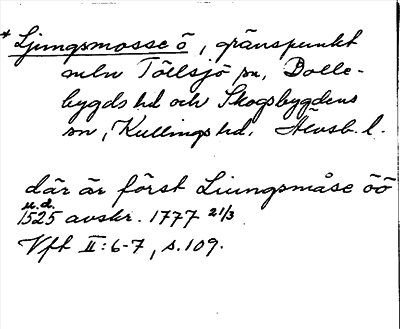 * Ljungsmosse ö, gränspunkt
mln Töllsjö sn, Bolle-
bygds hd och Skogsbygdens
sn, Kullings hd. Älvsb. l.
där är först Liungsmåse öö
u.d.
1525 avskr. 1777 21/3
Vft II:6-7, s.109.